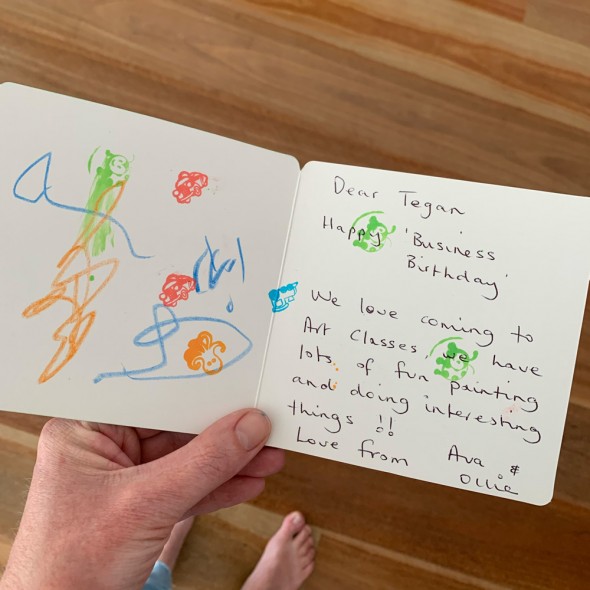 Dear Tegan
Happy 'Business
Birthday'
We love coming to
Art Classes, we have
lots of fun painting
and doing interesting
things !!
Love from Ava &
Ollie